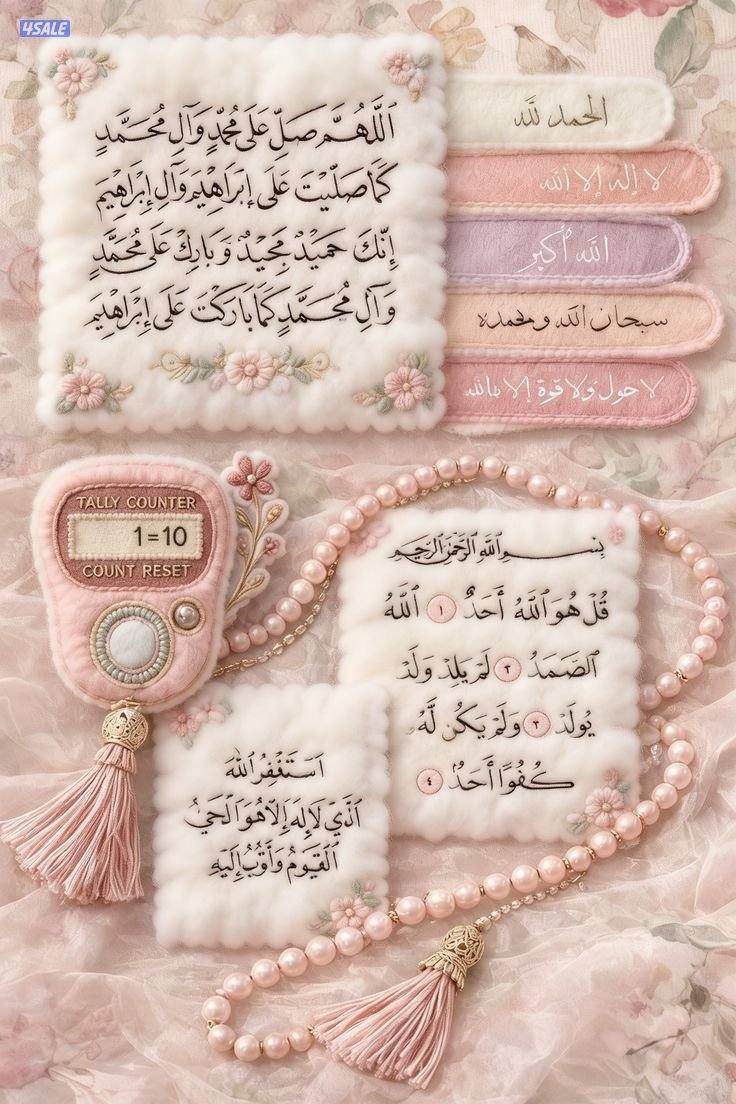 4SALE
اَللّٰهُمَّ صَلِّ عَلَى مُحَمَّدٍ وَآلِ مُحَمَّدٍ
كَمَا صَلَّيْتَ عَلَى إِبْرَاهِيْمَ وَآلِ إِبْرَاهِيْمَ
إِنَّكَ حَمِيْدٌ مَجِيْدٌ وَبَارِكْ عَلَى مُحَمَّدٍ
وَآلِ مُحَمَّدٍ كَمَا بَارَكْتَ عَلَى إِبْرَاهِيْمَ
الحمد لله
لا إله إلا الله
الله أكبر
سبحان الله وبحمده
لا حول ولا قوة إلا بالله
TALLY COUNTER
1=10
COUNT RESET
بِسْمِ اللّٰهِ الرَّحْمٰنِ الرَّحِيْمِ
قُلْ هُوَ اللّٰهُ أَحَدٌ ١ اَللّٰهُ
الصَّمَدُ ٢ لَمْ يَلِدْ وَلَمْ
يُولَدْ ٣ وَلَمْ يَكُنْ لَّهُ
كُفُوًا أَحَدٌ ٤
اَسْتَغْفِرُ اللّٰهَ
اَلَّذِيْ لَا إِلٰهَ إِلَّا هُوَ الْحَيُّ
الْقَيُّومُ وَأَتُوْبُ إِلَيْهِ